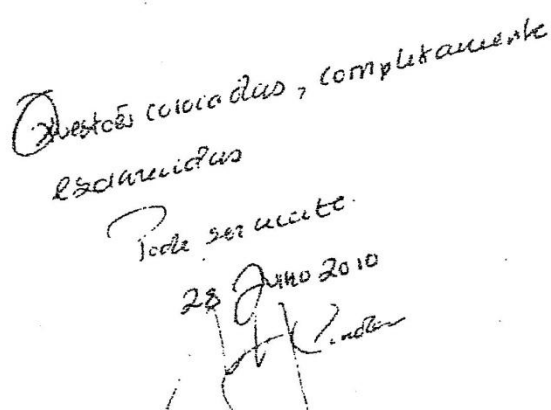 Questões colocadas, completamente
esclarecidas
Pode ser aceite.
28 Junho 2010